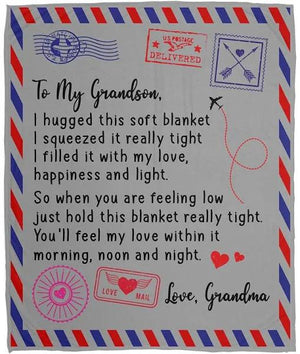 U.S. POSTAGE
DELIVERED
To My Grandson,
I hugged this soft blanket
I squeezed it really tight
I filled it with my love,
happiness and light.
So when you are feeling low
just hold this blanket really tight.
You'll feel my love within it
morning, noon and night.
LOVE MAIL
Love, Grandma